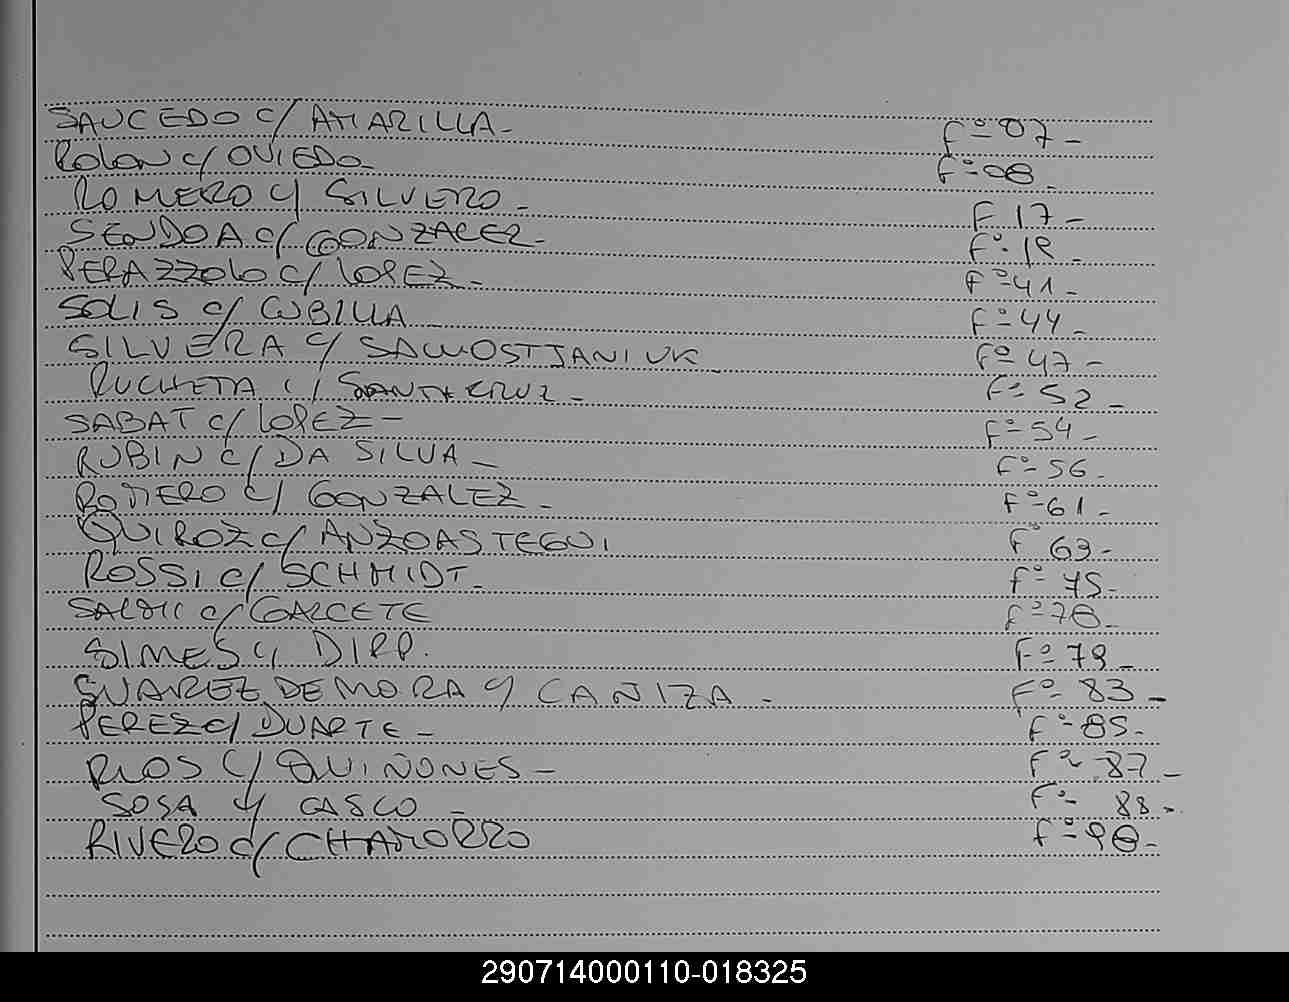 SAUCEDO c/ AMARILLA- Fº-07-
ROLON c/ OVIEDO- Fº-08-
ROMERO c/ SILVERO- F 17-
SENDOA c/ GONZALEZ- Fº-19-
PERAZZOLO c/ LOPEZ- Fº-41-
SOLIS c/ CUBILLA Fº-44-
SILVERA c/ SAMOSTJANIUK Fº-47-
c/ SANTA CRUZ- Fº-52-
SABAT c/ LOPEZ- Fº-54-
RUBIN c/ DA SILVA- Fº-56-
ROMERO c/ GONZALEZ- Fº-61-
QUIROZ c/ ANZOASTEGUI Fº 63-
ROSSI c/ SCHMIDT- Fº-75-
c/ GALCETE Fº-78-
SIMES c/ DIPP. Fº-79-
SUAREZ DE MORA c/ CANIZA- Fº-83-
PEREZ c/ DUARTE- Fº-85-
RIOS c/ QUIÑONES- Fº-87-
SOSA c/ CASCO- Fº- 88-
RIVERO c/ CHAMORRO Fº-90-
290714000110-018325